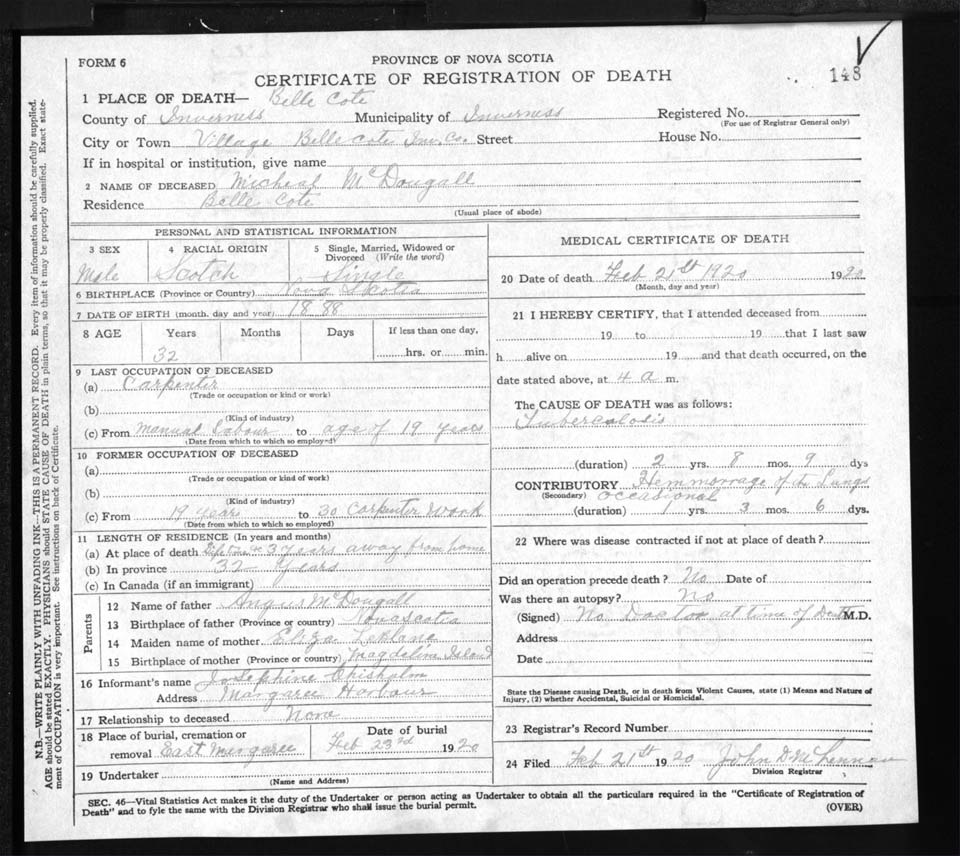 FORM 6
PROVINCE OF NOVA SCOTIA
CERTIFICATE OF REGISTRATION OF DEATH
148
1 PLACE OF DEATH— Belle Cote
County of Inverness Municipality of Inverness Registered No.
(For use of Registrar General only)
City or Town Village Belle cote Inv. Co. Street House No.
If in hospital or institution, give name
2 NAME OF DECEASED Micheal McDougall
Residence Belle Cote
(Usual place of abode)
PERSONAL AND STATISTICAL INFORMATION
3 SEX 4 RACIAL ORIGIN 5 Single, Married, Widowed or Divorced (Write the word)
Male Scotch Single
6 BIRTHPLACE (Province or Country) Nova Scotia
7 DATE OF BIRTH (month, day and year) 1888
8 AGE Years Months Days If less than one day,
32 hrs. or min.
9 LAST OCCUPATION OF DECEASED
(a) Carpenter
(Trade or occupation or kind or work)
(b)
(Kind of industry)
(c) From manual labour to age of 19 years
(Date from which to which so employed)
10 FORMER OCCUPATION OF DECEASED
(a)
(Trade or occupation or kind of work)
(b)
(Kind of industry)
(c) From 19 years to 30 Carpenter Work
(Date from which to which so employed)
11 LENGTH OF RESIDENCE (In years and months)
(a) At place of death Life time 3 years away from home
(b) In province 32 years
(c) In Canada (if an immigrant)
Parents
12 Name of father Angus McDougall
13 Birthplace of father (Province or country) Novascotia
14 Maiden name of mother Eliza Leblanc
15 Birthplace of mother (Province or country) Magdelin Island
16 Informant's name Josephine Chisholm
Address Margaree Harbour
17 Relationship to deceased None
18 Place of burial, cremation or removal East Margaree Date of burial Feb 23rd 1920
19 Undertaker
(Name and Address)
MEDICAL CERTIFICATE OF DEATH
20 Date of death Feb 21st 1920 1920
(Month, day and year)
21 I HEREBY CERTIFY, that I attended deceased from
19 to 19 that I last saw
h alive on 19 and that death occurred, on the
date stated above, at 4 a m.
The CAUSE OF DEATH was as follows:
Tubercolosis
(duration) 2 yrs. 8 mos. 9 dys
CONTRIBUTORY Hemmorrage of the Lungs
(Secondary) occasional
(duration) 1 yrs. 3 mos. 6 dys.
22 Where was disease contracted if not at place of death?
Did an operation precede death? No Date of
Was there an autopsy? No
(Signed) No Doctor at time of Death M.D.
Address
Date
State the Disease causing Death, or in death from Violent Causes, state (1) Means and Nature of
Injury, (2) whether Accidental, Suicidal or Homicidal.
23 Registrar's Record Number
24 Filed Feb 21st 1920 John D McLennan
Division Registrar
SEC. 46—Vital Statistics Act makes it the duty of the Undertaker or person acting as Undertaker to obtain all the particulars required in the "Certificate of Registration of
Death" and to fyle the same with the Division Registrar who shall issue the burial permit.
(OVER)
N.B.—WRITE PLAINLY WITH UNFADING INK—THIS IS A PERMANENT RECORD. Every item of information should be carefully supplied.
AGE should be stated EXACTLY. PHYSICIANS should STATE CAUSE OF DEATH in plain terms, so that it may be properly classified. Exact state-
ment of OCCUPATION is very important. See instructions on back of Certificate.